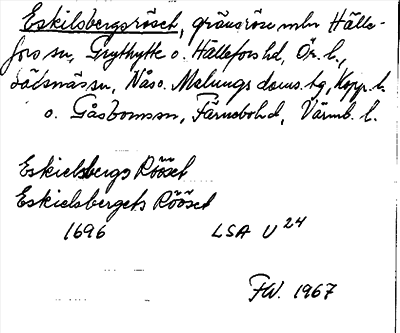 Eskilsbergsröset, gränsröse mln Hälle-
fors sn, Grythytte o. Hällefors hd, Ör. l.,
Säfsnäs sn, Nås o. Malungs doms. hg, Kopp. l.
o. Gåsborns sn, Färnebo hd, Värml. l.
Eskielsbergs Rööset
Eskielsbergets Rööset
1696 LSA U 24
FW. 1967